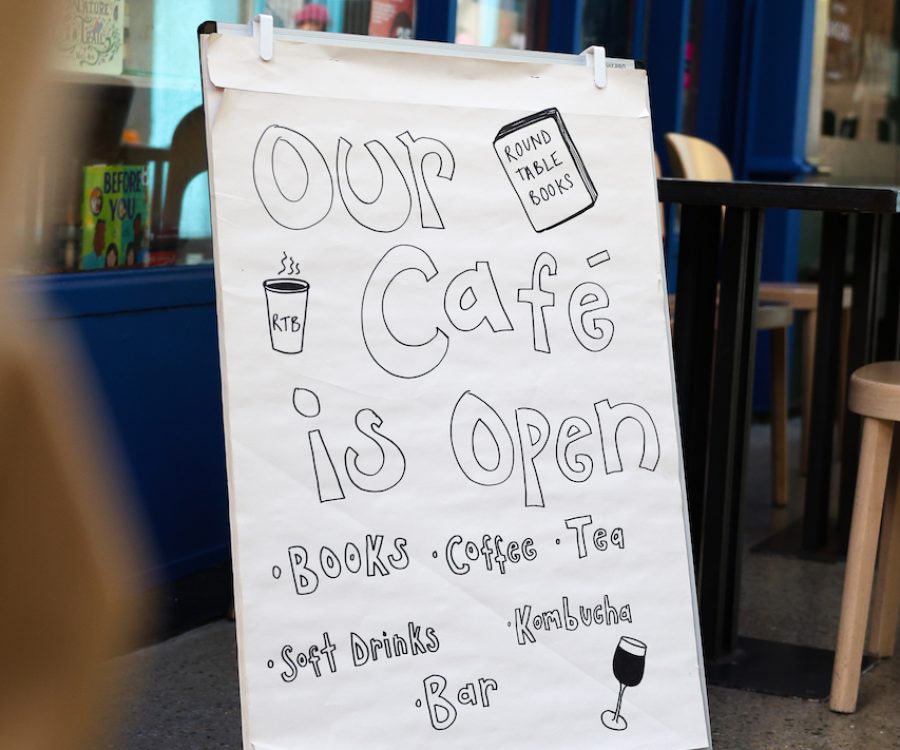 Our
ROUND
TABLE
BOOKS
Café
RTB
is Open
· Books · Coffee · Tea
· Soft Drinks · Kombucha
· Bar
BEFORE
YOU